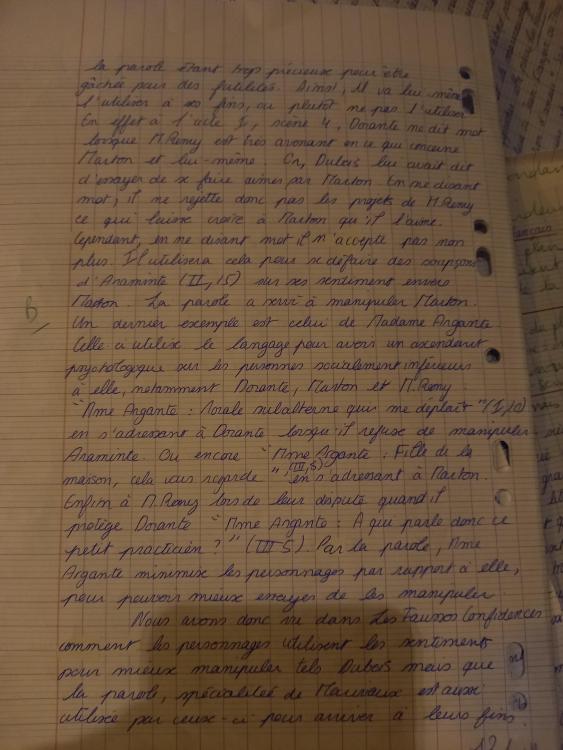 la parole étant trop précieuse pour être
gâchée par des futilités. Ainsi, il va lui même
l'utiliser à ses fins, ou plutôt ne pas l'utiliser
En effet à l'acte I, scène 4, Dorante ne dit mot
lorsque M. Remy est très avenant en ce qui concerne
Marton et lui-même. Or, Dubois lui avait dit
d'essayer de se faire aimer par Marton. En ne disant
mot, il ne rejette donc pas les projets de M. Remy
ce qui laisse croire à Marton qu'il l'aime.
Cependant, en ne disant mot il n'accepte pas non
plus. Il utilisera cela pour se défaire des soupçons
d'Araminte (II, 15) sur ses sentiment envers
Marton. La parole a servi à manipuler Marton.
Un dernier exemple est celui de Madame Argante.
Celle ci utilise le langage pour avoir un ascendant
psychologique sur les personnes socialement inférieurs
à elle, notamment Dorante, Marton et M. Remy.
"Mme Argante : Morale subalterne qui me déplaît" (I, 10)
en s'adressant à Dorante lorsqu'il refuse de manipuler
Araminte. Ou encore "Mme Argante : Fille de la
maison, cela vous regarde", (III, 8) en s'adressant à Marton.
Enfin à M. Remy lors de leur dispute quand il
protège Dorante "Mme Argante : A qui parle donc ce
petit practicien ?" (III 5). Par la parole, Mme
Argante minimise les personnages par rapport à elle,
pour pouvoir mieux essayer de les manipuler
Nous avons donc vu dans Les Fausses Confidences
comment les personnages utilisent les sentiments
pour mieux manipuler tels Dubois mais que
la parole, spécialitée de Marivaux est aussi
utilisée par ceux-ci pour arriver à leurs fins.